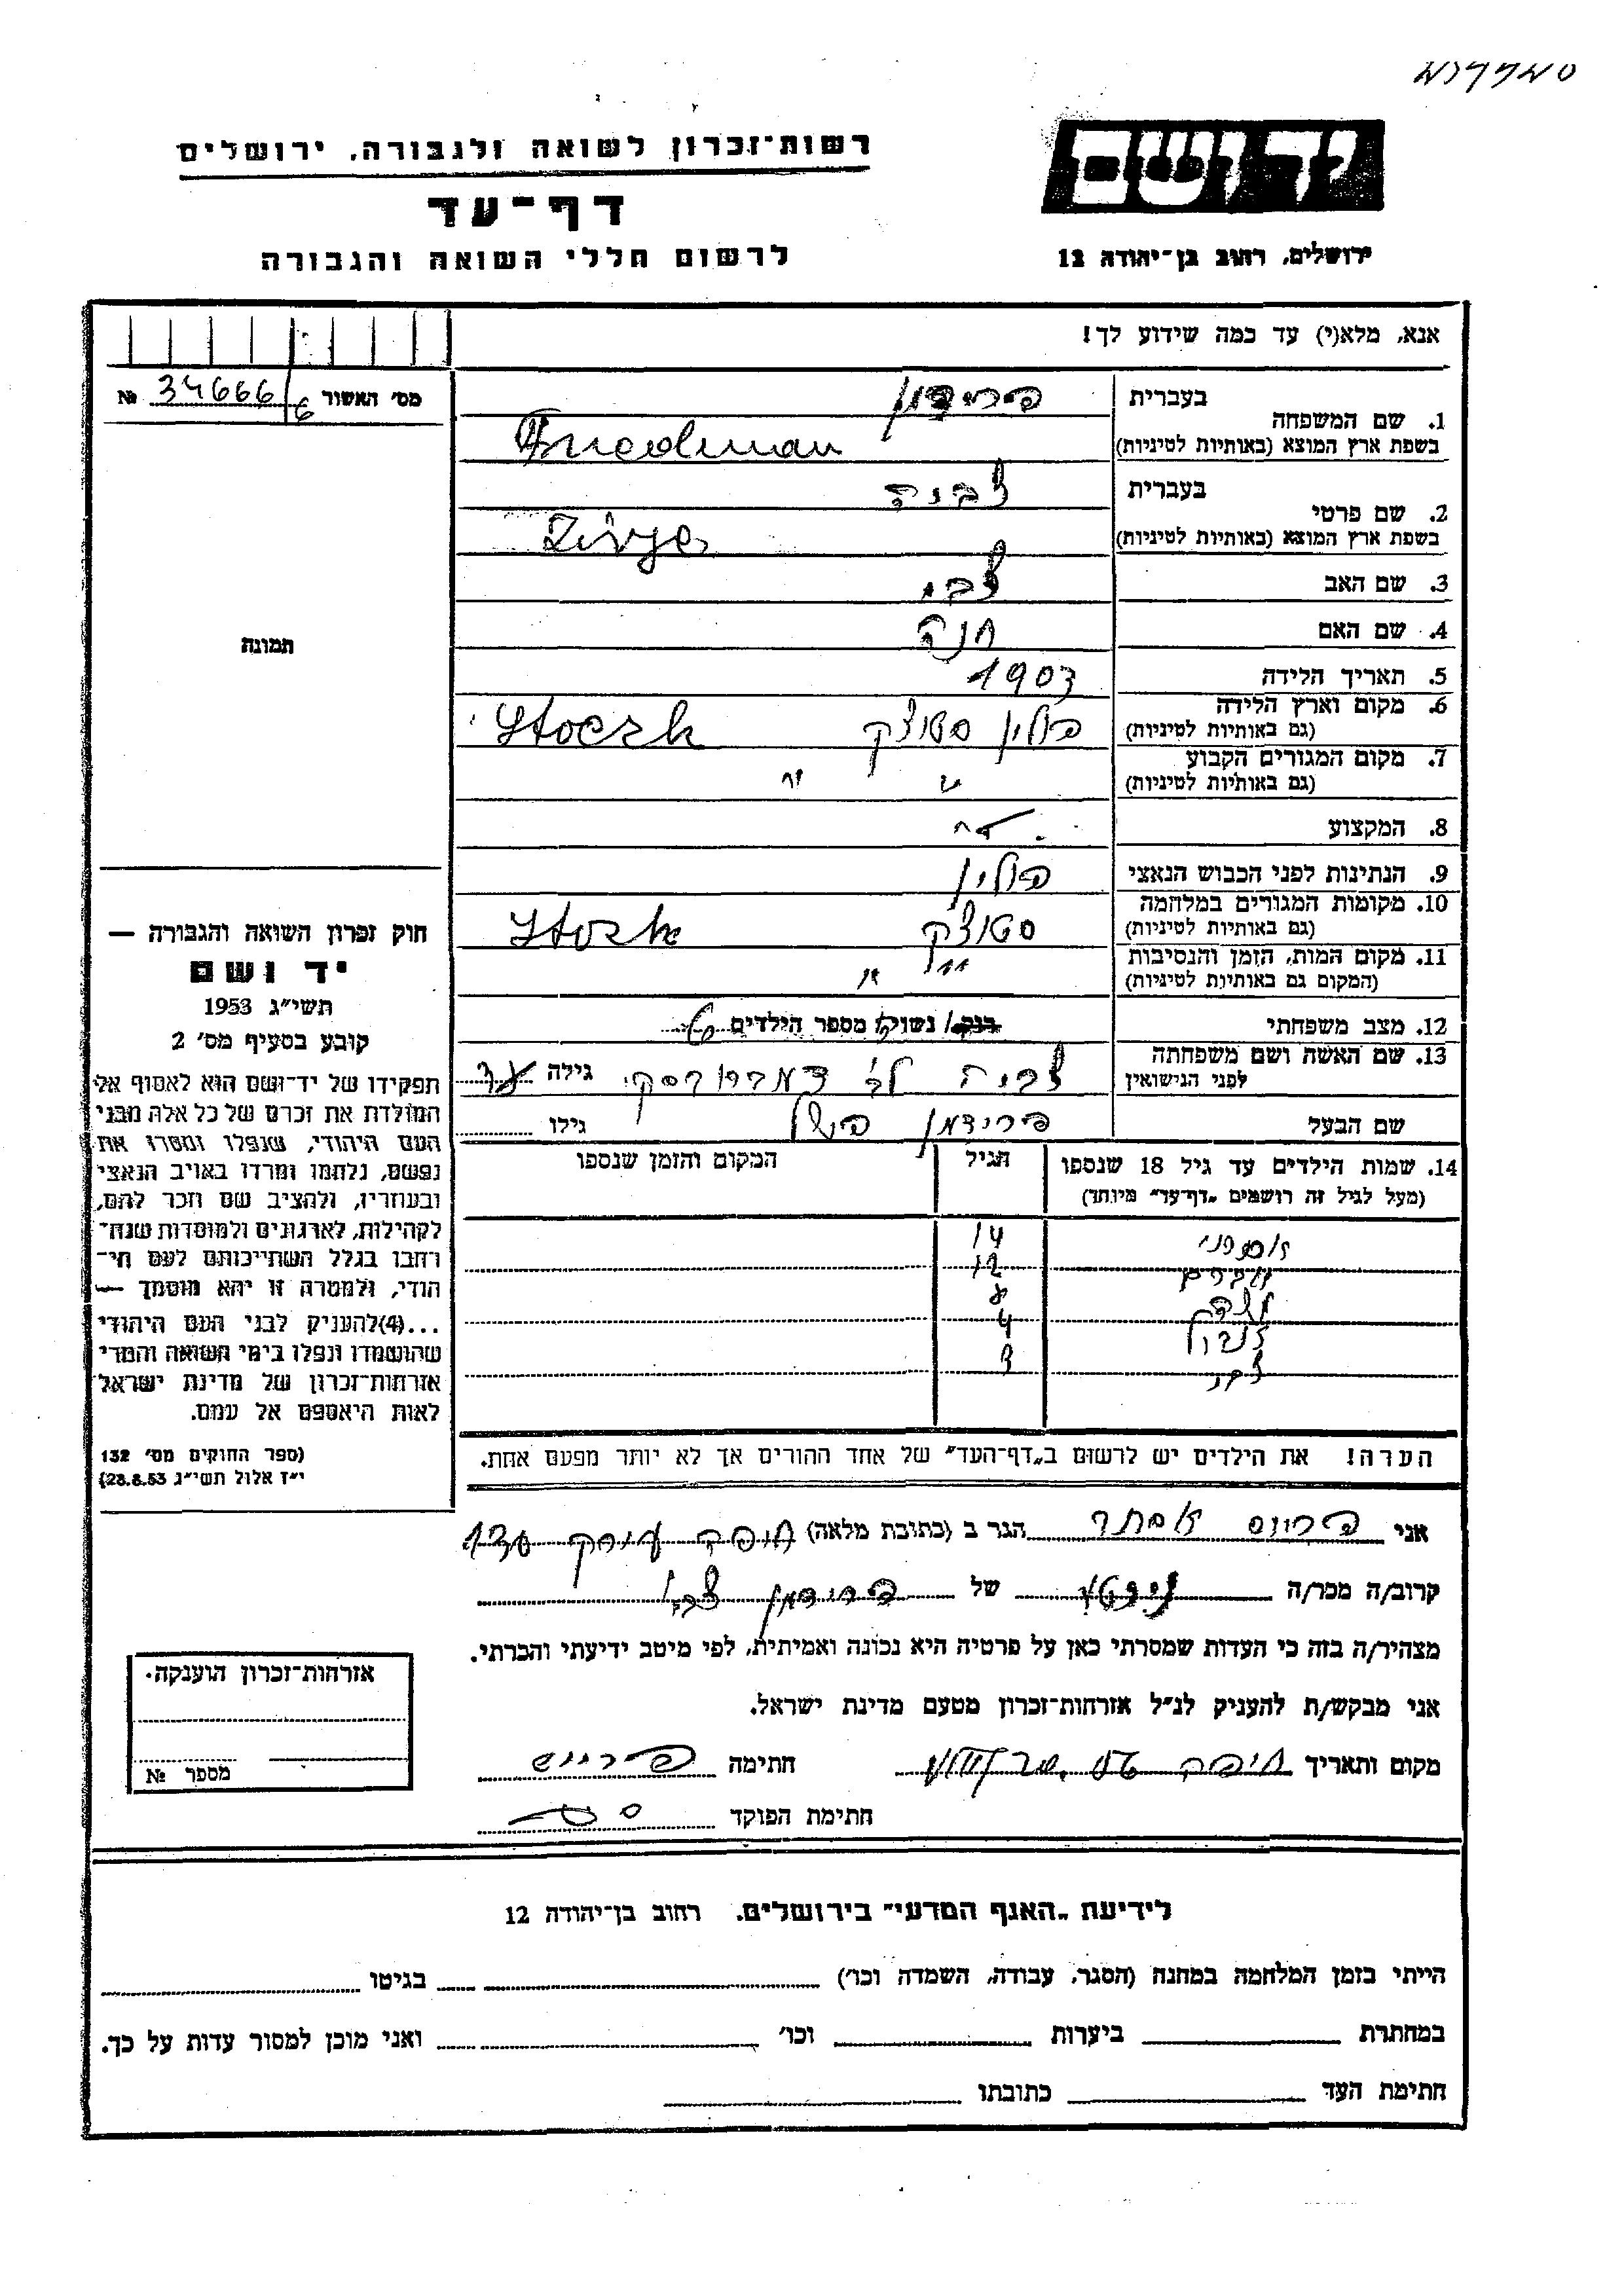 יד ושם
רשות־זכרון לשואה ולגבורה, ירושלים
דף־עד
לרשום חללי השואה והגבורה
ירושלים, רחוב בן־יהודה 12
אנא, מלא(י) עד כמה שידוע לך!
מס' האשור № 34666/6
1. שם המשפחה בעברית פרידמן
בשפת ארץ המוצא (באותיות לטיניות) Friedman
2. שם פרטי בעברית צביה
בשפת ארץ המוצא (באותיות לטיניות)
3. שם האב צבי
4. שם האם חנה
5. תאריך הלידה 1903
6. מקום וארץ הלידה פולין סטוצק Stoczk
(גם באותיות לטיניות)
7. מקום המגורים הקבוע " "
(גם באותיות לטיניות)
8. המקצוע
9. הנתינות לפני הכבוש הנאצי פולין
10. מקומות המגורים במלחמה סטוצק Stozk
(גם באותיות לטיניות)
11. מקום המות, הזמן והנסיבות " "
(המקום גם באותיות לטיניות)
12. מצב משפחתי רוק/ נשוי/ מספר הילדים
13. שם האשה ושם משפחתה צביה לב' דמברובסקי גילה
לפני הנישואין
שם הבעל פרידמן גילו
14. שמות הילדים עד גיל 18 שנספו הגיל המקום והזמן שנספו
(מעל לגיל זה רושמים „דף־עד" מיוחד)
14
אברהם 12
8
4
צבי 3
הערה! את הילדים יש לרשום ב„דף־העד" של אחד ההורים אך לא יותר מפעם אחת.
תמונה
חוק זכרון השואה והגבורה —
יד ושם
תשי"ג 1953
קובע בסעיף מס' 2
תפקידו של יד־ושם הוא לאסוף אל
המולדת את זכרם של כל אלה מבני
העם היהודי, שנפלו ומסרו את
נפשם, נלחמו ומרדו באויב הנאצי
ובעוזריו, ולהציב שם וזכר להם,
לקהילות, לארגונים ולמוסדות שנח־
רבו בגלל השתייכותם לעם הי־
הודי, ולמטרה זו יהא מוסמך —
...(4)להעניק לבני העם היהודי
שהושמדו ונפלו בימי השואה והמרי
אזרחות־זכרון של מדינת ישראל
לאות היאספם אל עמם.
(ספר החוקים מס' 132
י"ז אלול תשי"ג 28.8.53)
אני אסתר הגר ב (כתובת מלאה) חיפה
קרוב/ה מכר/ה של פרידמן צביה
מצהיר/ה בזה כי העדות שמסרתי כאן על פרטיה היא נכונה ואמיתית, לפי מיטב ידיעתי והכרתי.
אני מבקש/ת להעניק לנ"ל אזרחות־זכרון מטעם מדינת ישראל.
מקום ותאריך חיפה חתימה
חתימת הפוקד
אזרחות־זכרון הוענקה.
מספר №
לידיעת „האגף המדעי" בירושלים. רחוב בן־יהודה 12
הייתי בזמן המלחמה במחנה (הסגר, עבודה, השמדה וכו') בגיטו
במחתרת ביערות וכו' ואני מוכן למסור עדות על כך.
חתימת העד כתובתו